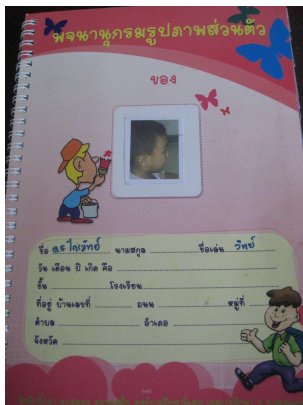 พจนานุกรมรูปภาพส่วนตัว
ของ
ชื่อ ด.ช.ไกรวิทย์ นามสกุล ชื่อเล่น วิทย์
วัน เดือน ปี เกิด คือ
ชั้น โรงเรียน
ที่อยู่ บ้านเลขที่ ถนน หมู่ที่
ตำบล อำเภอ
จังหวัด